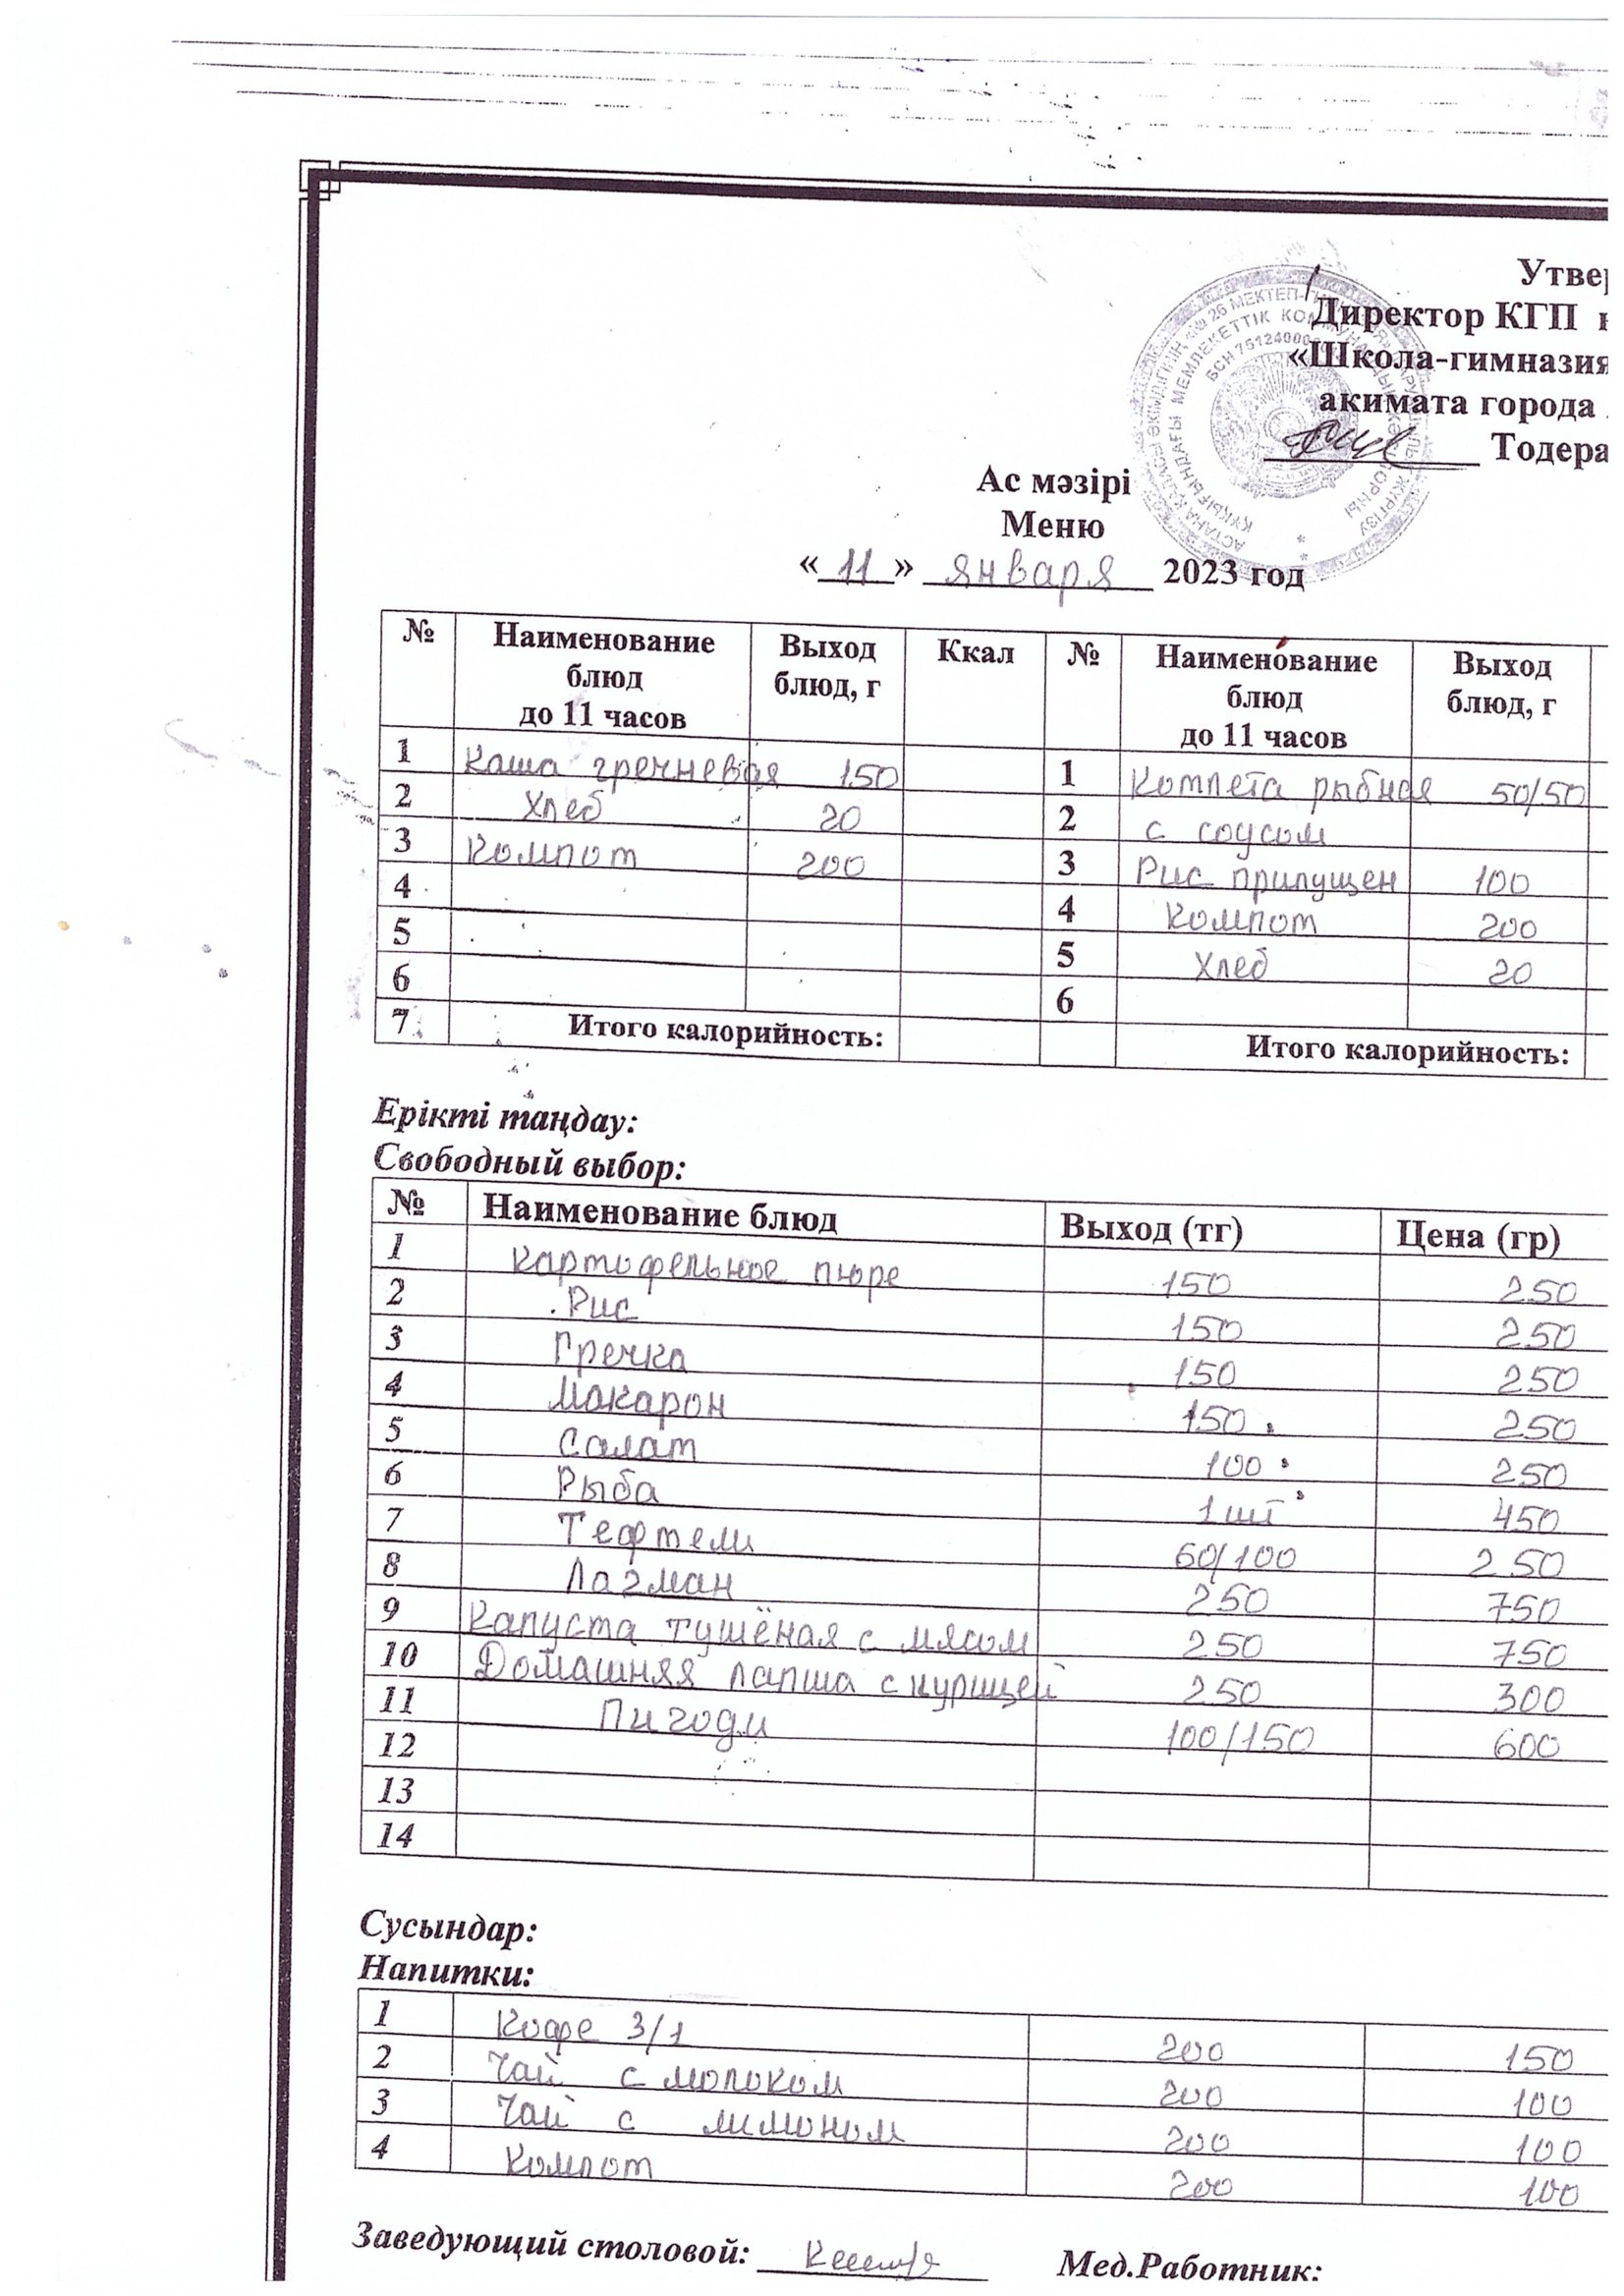 Утвер
Директор КГП н
«Школа-гимназия
акимата города
Тодера
Ас мәзірі
Меню
«11» января 2023 год
№ Наименование блюд до 11 часов Выход блюд, г Ккал № Наименование блюд до 11 часов Выход блюд, г
1 Каша гречневая 150 1 Котлета рыбная 50/50
2 Хлеб 20 2 с соусом
3 Компот 200 3 Рис припущен 100
4 4 Компот 200
5 5 Хлеб 20
6 6
7 Итого калорийность: Итого калорийность:
Ерікті таңдау:
Свободный выбор:
№ Наименование блюд Выход (тг) Цена (гр)
1 Картофельное пюре 150 250
2 Рис 150 250
3 Гречка 150 250
4 Макарон 150 250
5 Салат 100 250
6 Рыба 1 шт 450
7 Тефтели 60/100 250
8 Лагман 250 750
9 Капуста тушёная с мясом 250 750
10 Домашняя лапша с курицей 250 300
11 Пигоди 100/150 600
12
13
14
Сусындар:
Напитки:
1 Кофе 3/1 200 150
2 Чай с молоком 200 100
3 Чай с лимоном 200 100
4 Компот 200 100
Заведующий столовой: Мед.Работник: